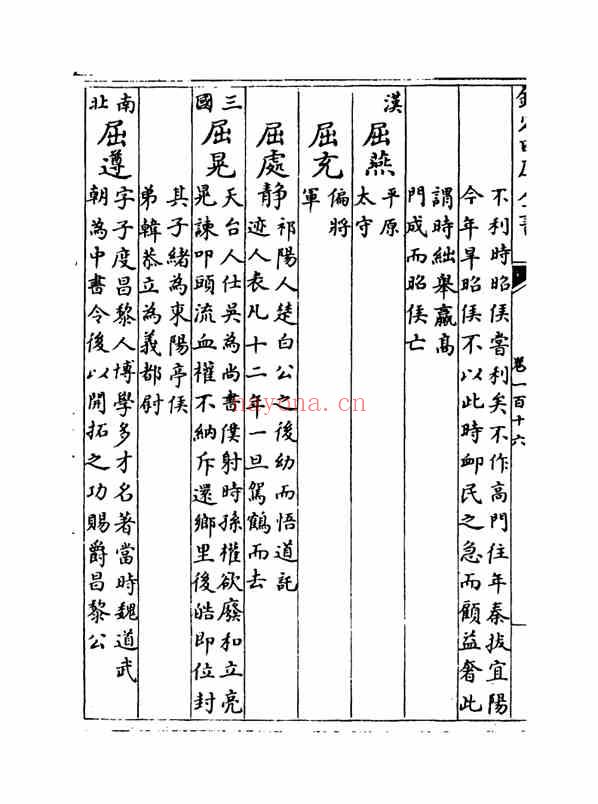 卷一百十六
不利時昭侯嘗利矣不作高門往年秦拔宜陽
今年旱昭侯不以此時卹民之急而顧益奢此
謂時絀舉贏高
門成而昭侯亡
漢
屈燕
平原
太守
屈充
偏將
軍
屈處靜
祁陽人楚白公之後幼而悟道託
迹人表凡十二年一旦駕鶴而去
三國
屈晃
天台人仕吳為尚書僕射時孫權欲廢和立亮
晃諫叩頭流血權不納斥還鄉里後皓即位封
其子緒為東陽亭侯
弟韓恭立為義都尉
南北
屈遵
字子度昌黎人博學多才名著當時魏道武
朝為中書令後以開拓之功賜爵昌黎公
nayona.cn